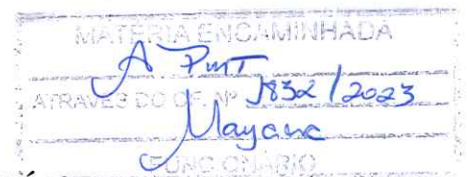 MATÉRIA ENCAMINHADA
A PMT
ATRAVÉS DO OF. Nº 1832/2023
Mayane
FUNCIONÁRIO